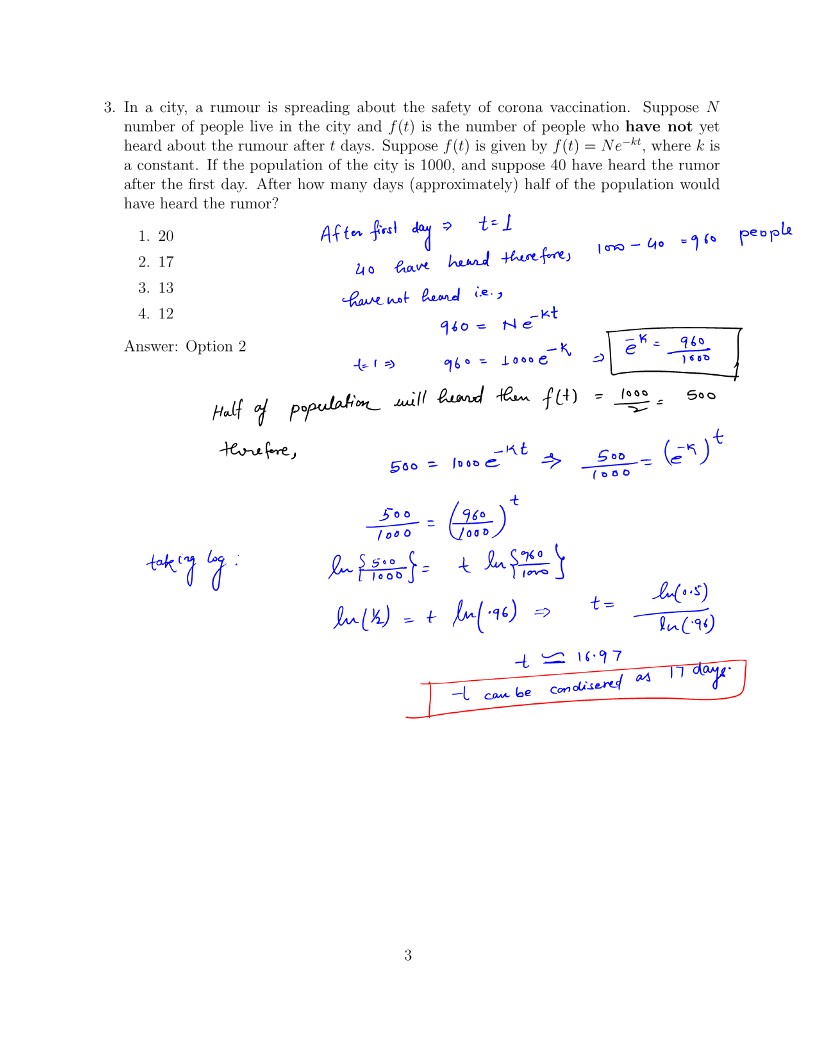 3. In a city, a rumour is spreading about the safety of corona vaccination. Suppose N
number of people live in the city and f(t) is the number of people who have not yet
heard about the rumour after t days. Suppose f(t) is given by f(t) = Ne^{-kt}, where k is
a constant. If the population of the city is 1000, and suppose 40 have heard the rumor
after the first day. After how many days (approximately) half of the population would
have heard the rumor?
1. 20
2. 17
3. 13
4. 12
Answer: Option 2
After first day ⇒ t=1
40 have heard therefore, 1000 - 40 = 960 people
have not heard i.e.,
960 = Ne^{-kt}
t=1 ⇒ 960 = 1000e^{-k} ⇒ e^{-k} = 960/1000
Half of population will heard then f(t) = 1000/2 = 500
therefore,
500 = 1000e^{-kt} ⇒ 500/1000 = (e^{-k})^t
500/1000 = (960/1000)^t
taking log: ln{500/1000} = t ln{960/1000}
ln(1/2) = t ln(.96) ⇒ t = ln(0.5)/ln(.96)
t ≃ 16.97
t can be condisered as 17 days.
3